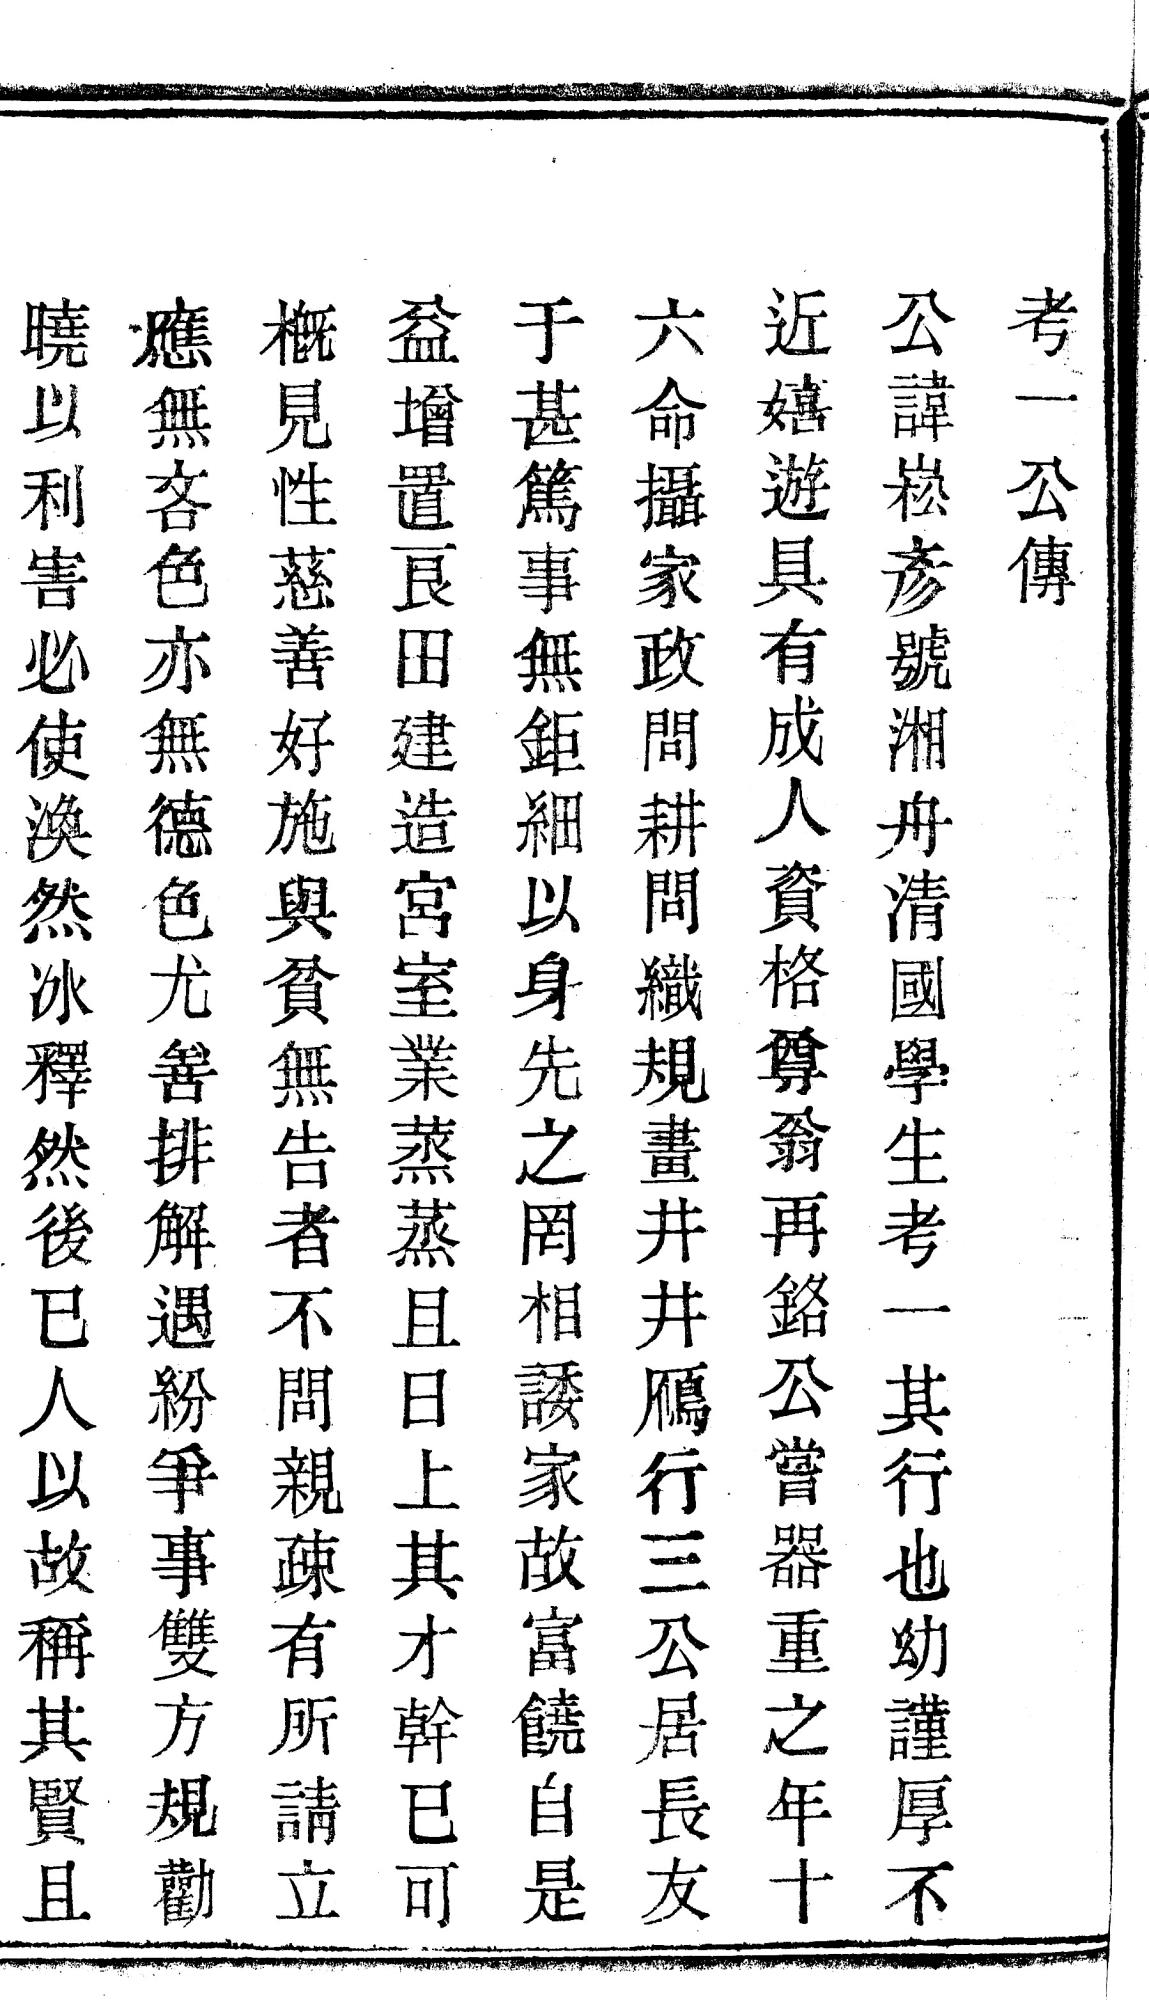 考一公傳
公諱崧彥號湘舟清國學生考一其行也幼謹厚不
近嬉遊具有成人資格尊翁再銘公嘗器重之年十
六命攝家政問耕問織規畫井井鴈行三公居長友
于甚篤事無鉅細以身先之罔相諉家故富饒自是
益增置良田建造宮室業蒸蒸且日上其才幹已可
概見性慈善好施與貧無告者不問親疎有所請立
應無吝色亦無德色尤善排解遇紛爭事雙方規勸
曉以利害必使渙然冰釋然後已人以故稱其賢且